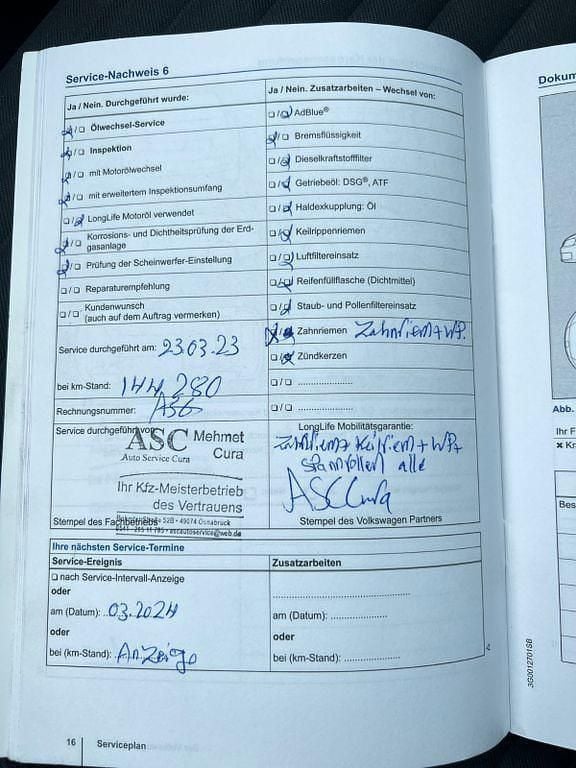 Service-Nachweis 6
Ja / Nein. Durchgeführt wurde:
☒/☐ Ölwechsel-Service
☒/☐ Inspektion
☒/☐ mit Motorölwechsel
☒/☐ mit erweitertem Inspektionsumfang
☐/☒ LongLife Motoröl verwendet
☒/☐ Korrosions- und Dichtheitsprüfung der Erd-
gasanlage
☒/☐ Prüfung der Scheinwerfer-Einstellung
☐/☐ Reparaturempfehlung
☐/☐ Kundenwunsch
(auch auf dem Auftrag vermerken)
Service durchgeführt am: 23.03.23
bei km-Stand: 144 280
Rechnungsnummer:
Service durchgeführt von:
ASC Mehmet
Cura
Auto Service Cura
Ihr Kfz-Meisterbetrieb
des Vertrauens
52B • 49074 Osnabrück
• ascautoservice@web.de
Stempel des Fachbetriebs
Ja / Nein. Zusatzarbeiten – Wechsel von:
☐/☒ AdBlue®
☒/☐ Bremsflüssigkeit
☐/☒ Dieselkraftstofffilter
☐/☒ Getriebeöl: DSG®, ATF
☐/☒ Haldexkupplung: Öl
☐/☒ Keilrippenriemen
☐/☒ Luftfiltereinsatz
☐/☒ Reifenfüllflasche (Dichtmittel)
☐/☒ Staub- und Pollenfiltereinsatz
☒/☒ Zahnriemen Zahnriem+WP.
☐/☒ Zündkerzen
☐/☐ ....................
☐/☐ ....................
LongLife Mobilitätsgarantie:
Zahnriem+Keilriem+WP+
Spannrollen alle
ASC Cura
Stempel des Volkswagen Partners
Ihre nächsten Service-Termine
Service-Ereignis
☐ nach Service-Intervall-Anzeige
oder
am (Datum): 03.2024
oder
bei (km-Stand): Anzeige
Zusatzarbeiten
........................................
am (Datum): ....................
oder
bei (km-Stand): ....................
16 Serviceplan
Dokum
Abb.
Ihr F
✖ Kr
Bes
3G0012701SB